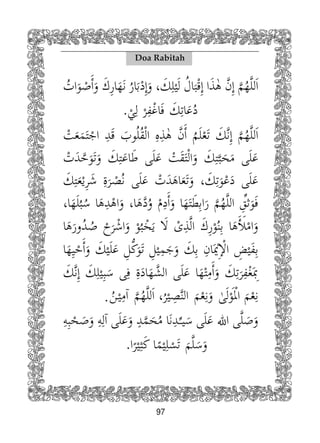 Doa Rabitah
اَللَّهُمَّ إِنَّ هٰذَا إِقْبَالُ لَيْلِكَ، وَإِدْبَارُ نَهَارِكَ وَأَصْوَاتُ
دُعَاتِكَ فَاغْفِرْ لِيْ.
اَللَّهُمَّ إِنَّكَ تَعْلَمُ أَنَّ هٰذِهِ الْقُلُوبَ قَدِ اجْتَمَعَتْ
عَلَى مَحَبَّتِكَ وَالْتَقَتْ عَلَى طَاعَتِكَ وَتَوَحَّدَتْ
عَلَى دَعْوَتِكَ، وَتَعَاهَدَتْ عَلَى نُصْرَةِ شَرِيْعَتِكَ
فَوَثِّقِ اللَّهُمَّ رَابِطَتَهَا وَأَدِمْ وُدَّهَا، وَاهْدِهَا سُبُلَهَا،
وَامْلَأْهَا بِنُوْرِكَ الَّذِى لَا يَخْبُوْ وَاشْرَحْ صُدُورَهَا
بِفَيْضِ الْإِيْمَانِ بِكَ وَجَمِيْلِ تَوَكُّلِ عَلَيْكَ وَأَحْيِهَا
بِمَعْرِفَتِكَ وَأَمِتْهَا عَلَى الشَّهَادَةِ فِى سَبِيْلِكَ إِنَّكَ
نِعْمَ الْمَوْلَىٰ وَنِعْمَ النَّصِيْرُ، اَللَّهُمَّ آمِيْنُ.
وَصَلَّى الله عَلَى سَيِّدِنَا مُحَمَّدٍ وَعَلَى آلِهِ وَصَحْبِهِ
وَسَلَّمَ تَسْلِيْمًا كَثِيْرًا.
97